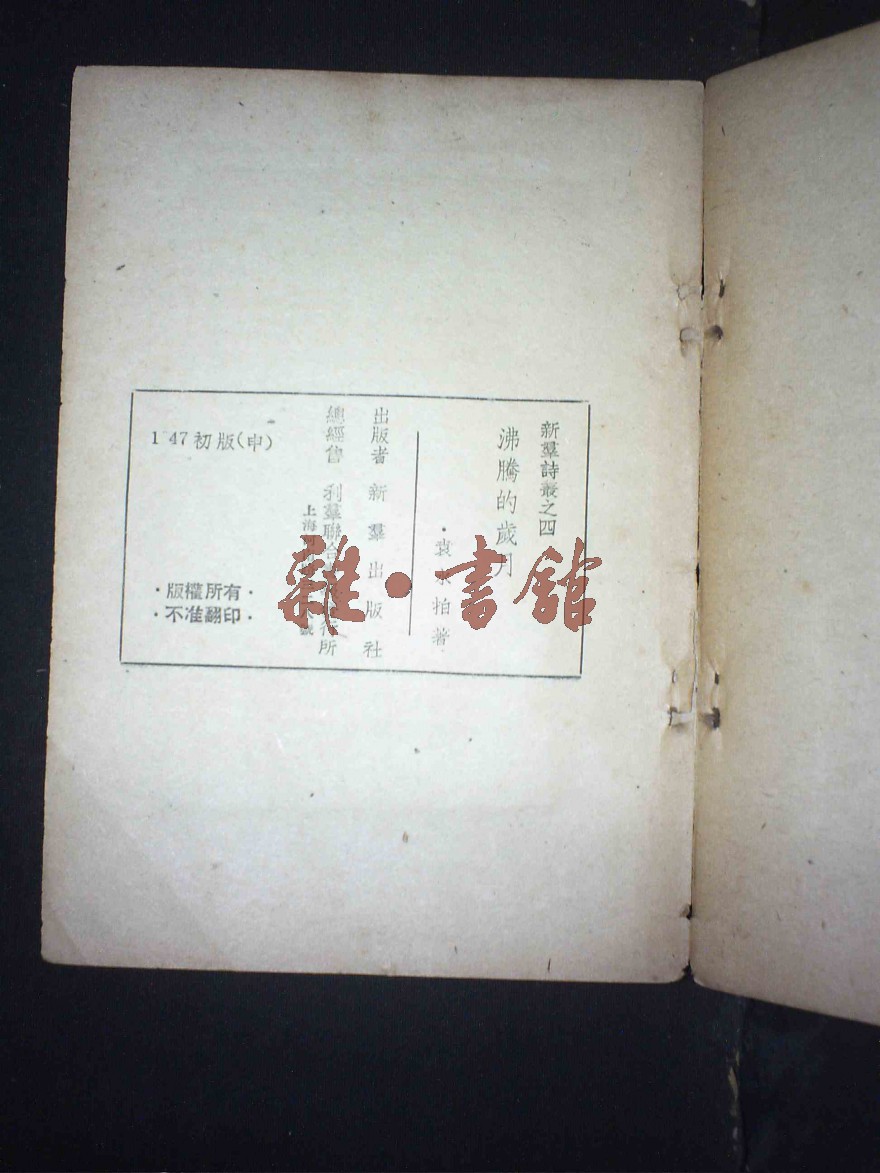 新羣詩叢之四
沸騰的歲月
·袁 拍著·
出版者 新羣出版社
總經售 利羣聯合 所
上海 號
1 47初版(申)
·版權所有·
·不准翻印·
雜·書館